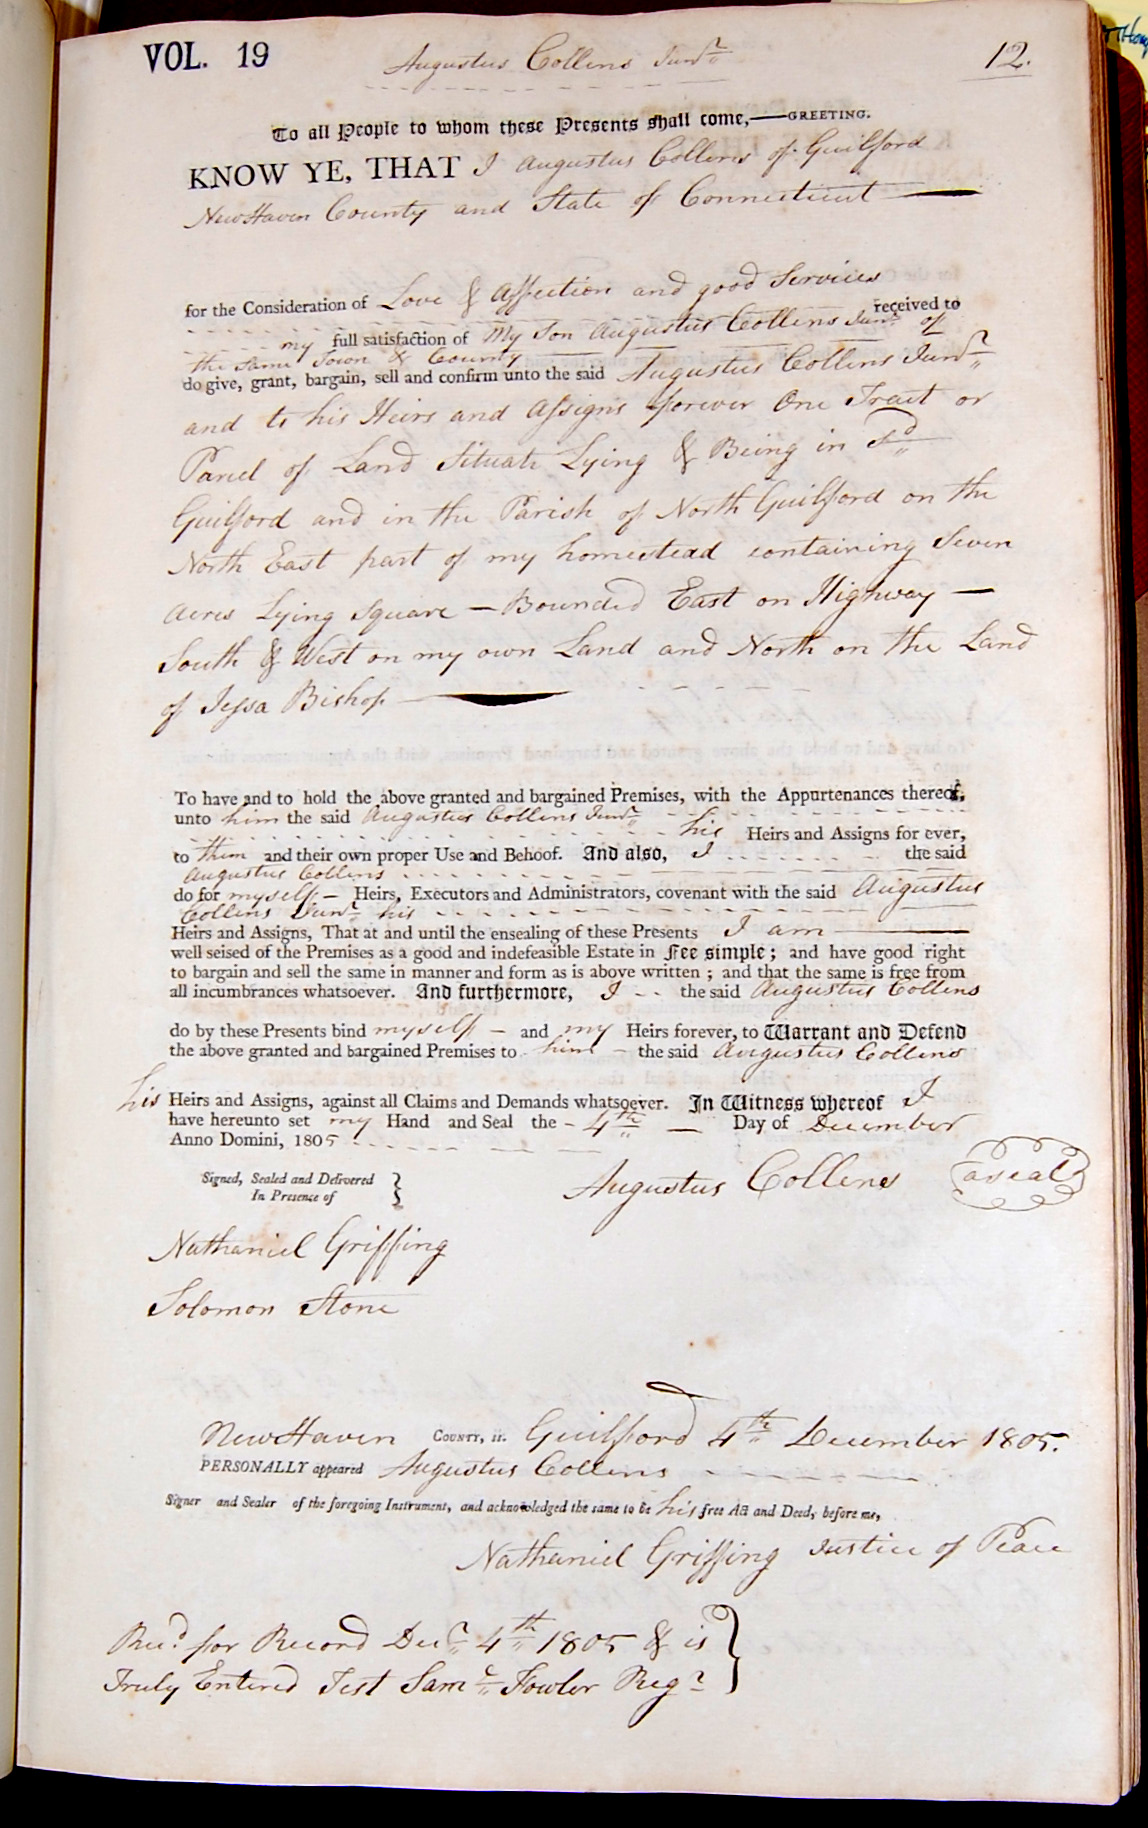 VOL. 19 Augustus Collins Junr 12.
To all People to whom these Presents shall come,—GREETING.
KNOW YE, THAT I Augustus Collins of Guilford
New Haven County and State of Connecticut
for the Consideration of Love & Affection and good Services
received to
my full satisfaction of My Son Augustus Collins Junr of
the Same Town & County
do give, grant, bargain, sell and confirm unto the said Augustus Collins Junr
and to his Heirs and Assigns forever One Tract or
Parcel of Land Situate Lying & Being in sd
Guilford and in the Parish of North Guilford on the
North East part of my homestead containing Seven
acres Lying Square — Bounded East on Highway —
South & West on my own Land and North on the Land
of Jessa Bishop
To have and to hold the above granted and bargained Premises, with the Appurtenances thereof,
unto him the said Augustus Collins Junr his Heirs and Assigns for ever,
to them and their own proper Use and Behoof. And also, I the said
Augustus Collins
do for myself – Heirs, Executors and Administrators, covenant with the said Augustus
Collins Junr his
Heirs and Assigns, That at and until the ensealing of these Presents I am
well seised of the Premises as a good and indefeasible Estate in Fee simple; and have good right
to bargain and sell the same in manner and form as is above written; and that the same is free from
all incumbrances whatsoever. And furthermore, I the said Augustus Collins
do by these Presents bind myself – and my Heirs forever, to Warrant and Defend
the above granted and bargained Premises to him – the said Augustus Collins
his Heirs and Assigns, against all Claims and Demands whatsoever. In Witness whereof I
have hereunto set my Hand and Seal the – 4th — Day of December
Anno Domini, 1805
Signed, Sealed and Delivered
In Presence of
Augustus Collins a seal
Nathaniel Griffing
Solomon Stone
New Haven COUNTY, ss. Guilford 4th December 1805.
PERSONALLY appeared Augustus Collins
Signer and Sealer of the foregoing Instrument, and acknowledged the same to be his free Act and Deed, before me,
Nathaniel Griffing Justice of Peace
Recd for Record Decr 4th 1805 & is
Truly Entered Test Saml Fowler Regr